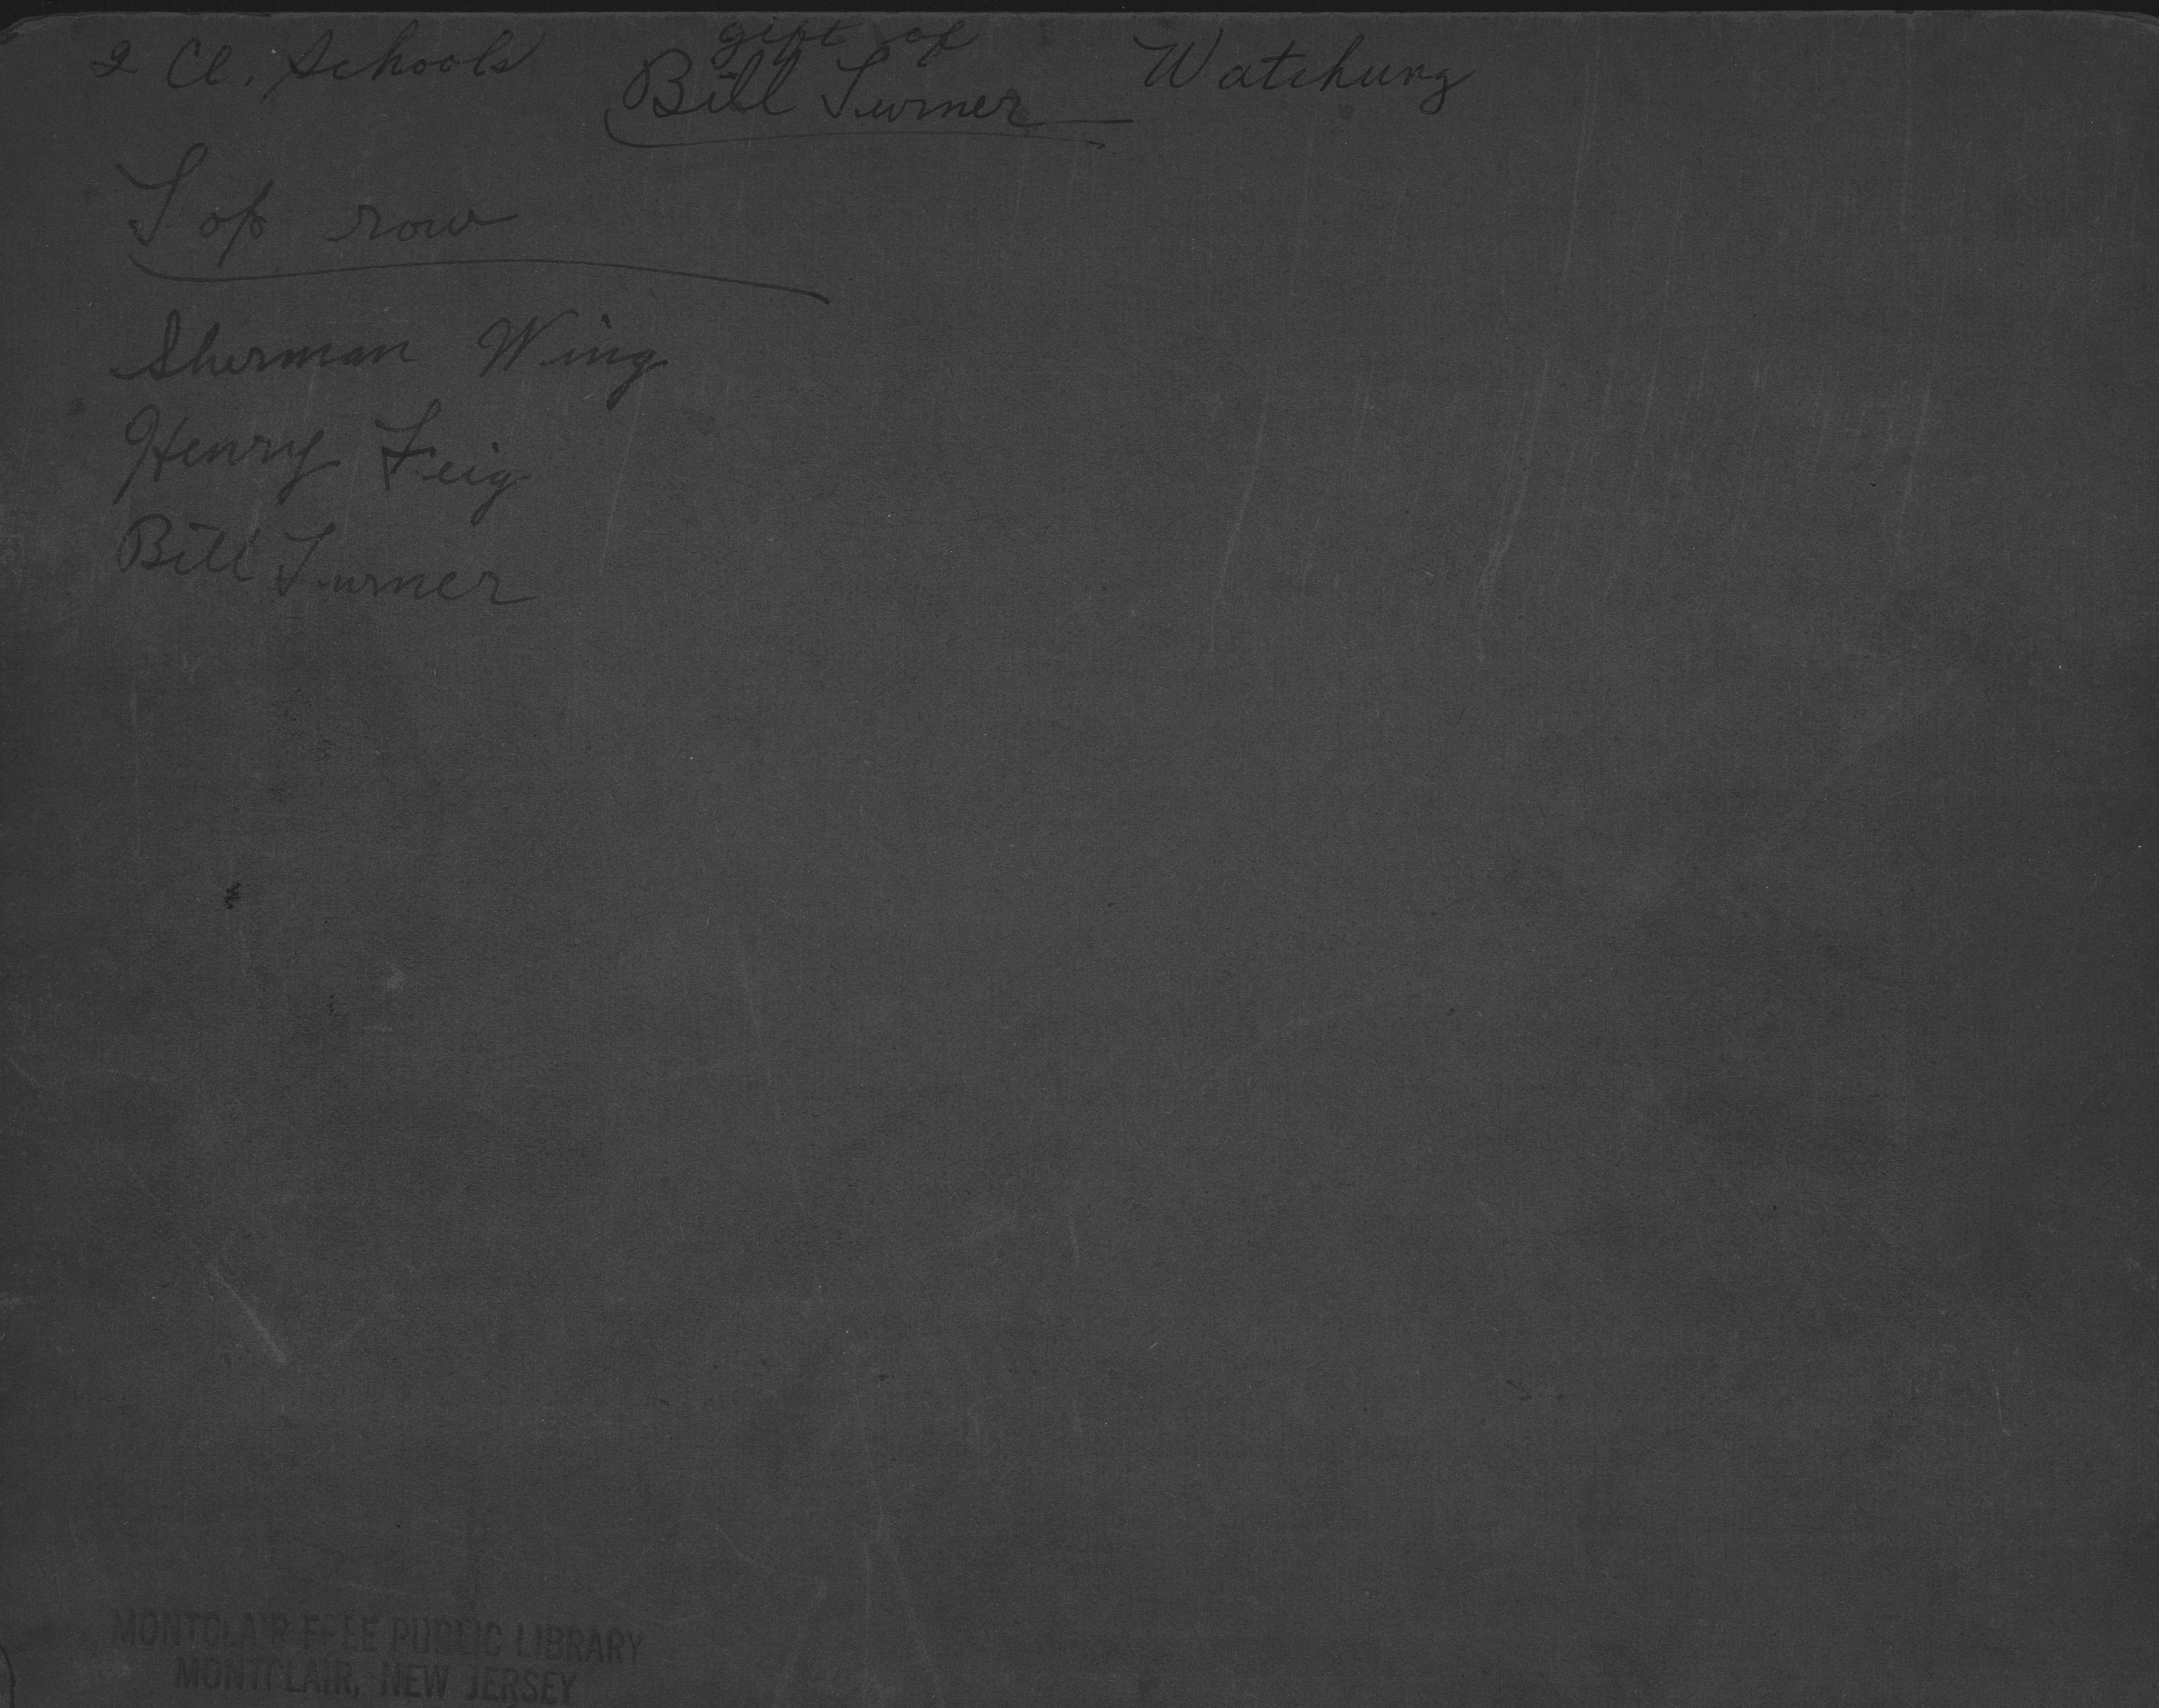 2 Cl. Schools
gift of
Bill Turner
Watchung
Top row
Sherman Wing
Henry Feig
Bill Turner
MONTCLAIR FREE PUBLIC LIBRARY
MONTCLAIR, NEW JERSEY